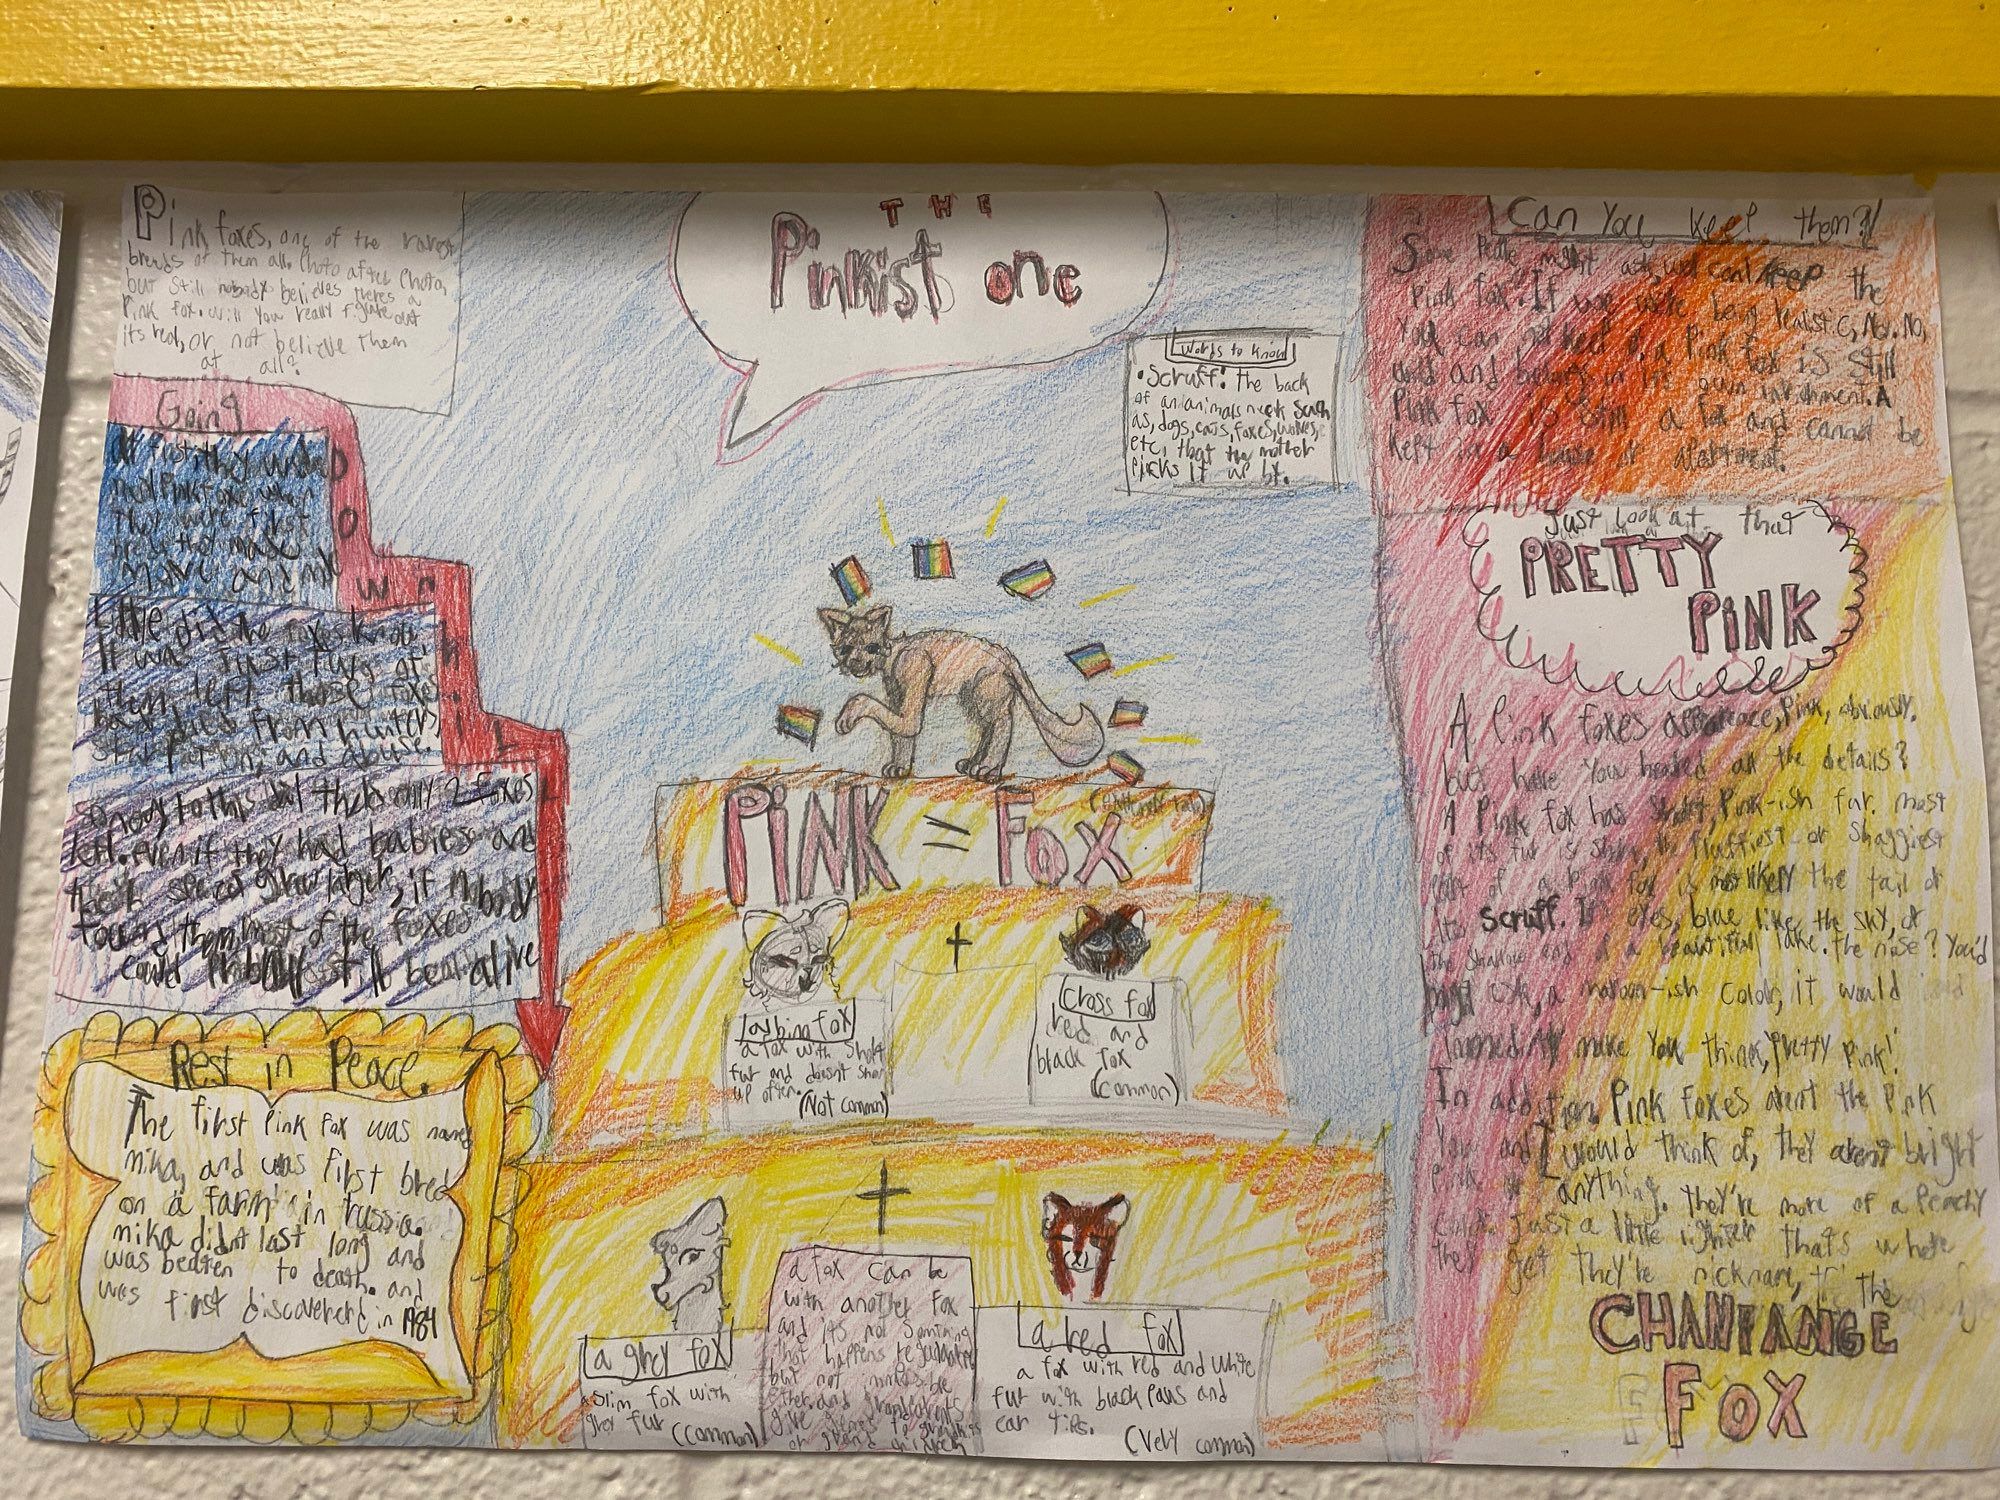 Pink foxes, one of the rarest
breeds of them all. Photo after Photo,
but still nobody believes theres a
Pink fox. will you really figure out
its real, or not believe them
at all?
THE
Pinkist one
Words to know
• Scruff: the back
of an animals neck such
as, dogs, cats, foxes, wolves,
etc, that the mother
Picks it up by.
Can You keep them?!
Some People might ask, well can I keep the
Pink fox? If we were being realistic, No. No,
You can not keep it, a Pink fox is still
wild and belongs in its own invirnment. A
Pink fox is still a fox and cannot be
kept in a house or apartment.
Going
Down
hill
At first, they
mad Pink foxes when
They were first
make
more and
Little did the foxes know
It was first fun, of
them left, those foxes
have died from hunters,
starvation, and abuse.
so now to this day theres only 2 foxes
left. even if they had babies and
their species grew larger, if nobody
them, most of the foxes
could Probably still be alive
Rest in Peace.
The first Pink fox was named
mika, and was first bred
on a farm in russia.
mika didnt last long and
was beaten to death. and
was first discovered in 1984
PINK = FOX
+
albino fox
a fox with short
fur and doesnt show
up often.
(Not common)
Cross fox
red and
black fox
(common)
+
a grey fox
a slim fox with
grey fur (common)
a fox can be
with another fox
and its not
that happens
but not
and grandparents
give genes to
a red fox
a fox with red and white
fur with black Paws and
ear tips.
(Very common)
Just look at that
PRETTY
PINK
A Pink foxes appearence, Pink, obviously.
but have You heared all the details?
A Pink fox has short, Pink-ish fur. most
of its fur is short, the fluffiest or shaggiest
Part of a Pink fox is most likely the tail or
its scruff. It's eyes, blue like the sky, or
the shallow end of a beautiful lake. the nose? You'd
might ask, a maroon-ish color, it would
immedintly make You think, Pretty Pink!'
In addition, Pink foxes arent the Pink
You and I would think of, they arent bright
Pink or anything. They're more of a Peachy
color. Just a little lighter thats where
they get they're nickname, the
CHANPANGE
FOX